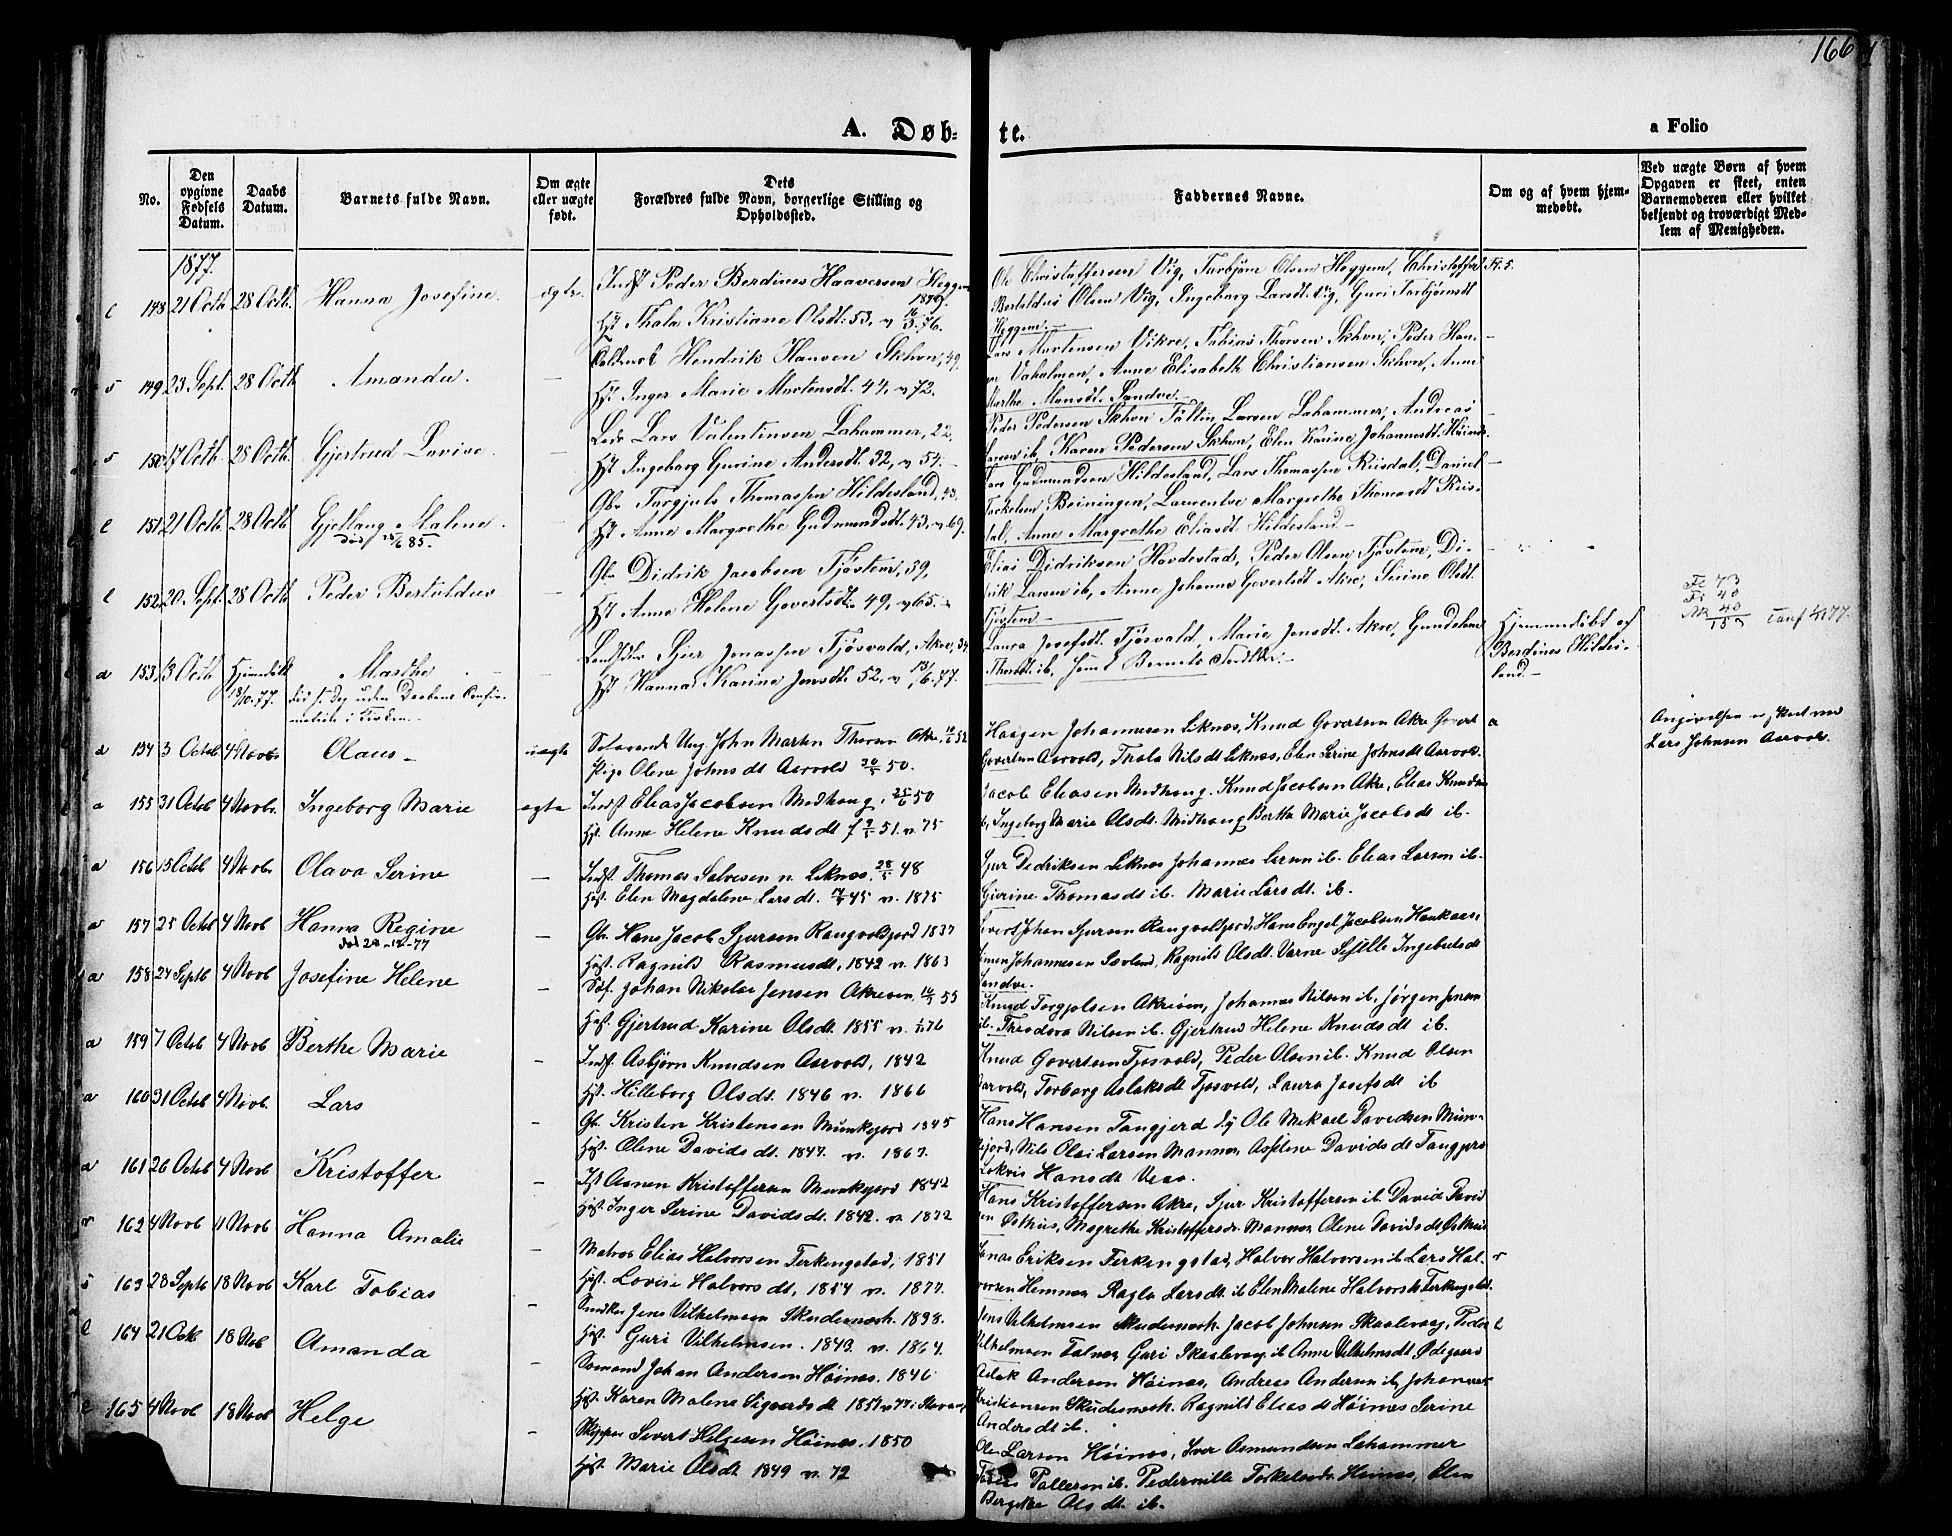 166
A. Døb-
te.
a Folio
No.
Den opgivne Fødsels Datum.
Daabs Datum.
Barnets fulde Navn.
Om ægte eller uægte født.
Dets Forældres fulde Navn, borgerlige Stilling og Opholdssted.
Faddernes Navne.
Om og af hvem hjemmedøbt.
Ved uægte Børn af hvem Opgaven er skeet, enten Barnemoderen eller hvilket bekjendt og troværdigt Medlem af Menigheden.
1877.
148 21 Octb 28 Octb. Hanna Josefine. ægte. Indst Peder Berdines Haaversen Heggem 1849.
Hst Thala Kristiane Olsdt. 53, v 16/3 76.
Ole Christoffersen Vig, Torbjørn Olsen Heggem, Christoffer
Bertuldus Olsen Vig, Ingeborg Larsdt. Vig, Guri Torbjørnsdt
Heggem.
149 23 Sept. 28 Octb Amanda. — Hendrik Hansen Skhvn, 49,
Hst Inger Marie Mortensdt. 44, v 72.
Lars Mortensen Vikre, Tobias Thorsen Skhvn, Peder Han-
sen Vaholmen, Anne Elisabeth Christiansen Skhvn, Anne
Marthe Monsdt. Sandve.
150 17 Octb. 28 Octb. Gjertrud Lovise. — Lars Valentinsen Lahammer, 22,
Hst Ingeborg Gurine Andersdt. 32, v 54.
Peder Pedersen Skhvn Tallin Larsen Lahammer, Andreas
Larsen ib, Karen Pedersen Skhvn, Elen Karine Johannesdt. Høines
151 21 Octb 28 Octb Gjellaug Malene. — Gbr Torgjuls Thomassen Hildesland, 43.
død 25/6 85.
Hst Anne Margrethe Gudmundsdt. 43, v. 69.
Lars Gudmundsen Hildesland, Lars Thomassen Riisdal, Daniel
Torkelsen Beiningen, Laurentse Margrethe Thomasdt Riis-
dal, Anne Margrethe Eliasdt. Hildesland.
152 20. Sept. 28 Octb Peder Bertuldus — Gbr Didrik Jacobsen Tjøstem, 39,
Hst Anne Helene Govertsdt. 49, v 65.
Elias Didriksen Hovdestad, Peder Olsen Tjøstem, Di-
drik Larsen ib, Anne Johanna Govertsdt. Akre, Serine Olsdt.
Tjøstem
153 3 Octb Hjemmedøbt 13/10.77. Marthe — Sjur Jonassen Tjøsvold, Akre, 34
død s. Dag uden Daabens Confir-
mation i Kirken.
Hst Hanna Karine Jensdt. 52, v 13/6.77.
Laura Josefsdt. Tjøsvald, Marie Jensdt. Akre, Gundelene
Thorsdt. ib,
Hjemmedøbt af
Berdines Hildes-
land.
154 3 Octob 4 Novbr Olaus uægte Selvreende Ung. John Martin Thorsen Akre, 52
Pige Olene Johnsdt Aarvold 20/5 50.
Haagen Johannesen Liknes, Knud Govertsen Akre Govert
Govertsen Aarvold, Thala Nilsdt Liknes, Elen Serine Johnsdt Aarvold.
Angivelsen er skeet ved
Lars Johnsen Aarvold.
155 31 Octob 4 Novbr. Ingeborg Marie ægte Indst Elias Jacobsen Medhaug, 25/6 50
Hst. Anne Helene Knudsdt f 9/5 51. v. 75
Jacob Eliasen Medhaug. Knud Jacobsen Akre, Elias Knudsen
ib, Ingeborg Marie Olsdt. Medhaug Bertha Marie Jacobsdt ib.
156 15 Octob 4 Novbr Olava Serine — Indst. Thomas Salvesen n. Liknes, 28/5 48
Hst. Elen Magdalene Larsdt. 17/8 45 v. 1875
Sjur Didriksen Liknes Johannes Iversen ib. Elias Larsen ib.
Gjerine Thomasdt ib. Marie Larsdt. ib.
157 25 Octob 4 Novb Hanna Regine — Gbr. Hans Jacob Sjursen Rangvoldjord 1837
død 28-12-77
Hst. Ragnild Rasmusdt, 1842 v. 1863
Govert Johan Sjursen Rangvoldsjord, Hans Engel Jacobsen Haukaas,
Simen Johannesen Sævland, Ragnild Olsdt. Varne Sesille Ingebretsdt
Sandve.
158 24 Septb 4 Novb Josefine Helene — Johan Nikolai Jensen Akrevn, 55
Hst. Gjertrud Karine Olsdt. 1855 v. 76
Knud Torgjelsen Akreøen, Johannes Nilsen ib, Jørgen Jensen
ib. Theodora Nilsen ib. Gjertrud Helene Knudsdt ib.
159 7 Octob 4 Novb Berthe Marie — Indst. Asbjørn Knudsen Aarvold, 1842
Hst. Hilleborg Olsdt. 1846 v. 1866
Knud Govertsen Tjøsvold, Peder Olsen ib. Knud Olsen
Aarvold, Torborg Aslaksdt Tjøsvold, Laura Josefsdt ib
160 31 Octob 4 Novb. Lars — Gbr. Kristen Kristensen Munkejord 1845
Hst. Olene Davidsdt. 1847. v. 1867.
Hans Hansen Tangjerd Ole Mikael Davidsen Munke-
jord, Nils Olai Larsen Mannes Davidsdt Tangjerd
Hansdt Veae.
161 26 Octob 4 Novb Kristoffer — Aanen Kristoffersen Munkejord 1842
Hst. Inger Serine Davidsdt. 1842. v. 1872
Hans Kristoffersen Akre, Sjur Kristoffersen ib. David David-
sen Østhus, Magrethe Kristoffersdt. Mannes, Olene Davidsdt Østhus
162 4 Novb 11 Novb Hanna Amalie — Matros Elias Halvorsen Ferkingstad, 1851
Hst. Lovise Halvorsdt, 1854 v. 1877.
Jonas Eriksen Ferkingstad, Halvor Halvorsen ib Lars Hal-
vorsen Hemnes Ragla Larsdt. ib Elen Malene Halvorsdt Ferkingstad.
163 28 Septb 18 Novb Karl Tobias — Jens Vilhelmsen Skudesnesh. 1838.
Hst. Guri Vilhelmsen. 1843. v. 1864.
Jens Vilhelmsen Skudesnesh. Jacob Johnsen Skaalevaag, Peder
Vilhelmsen Falnes Guri Skaalevaag ib Anne Vilhelmsdt Ødegaard
164 21 Octb 18 Nob Amanda — Sømand Johan Andersen Høines. 1846
Hst. Karen Malene Sigvardsdt 1857 v 77 i Stavanger
Aslak Andersen Høines, Andreas Andersen ib, Johannes
Kristiansen Skudesnesh. Ragnild Eliasdt Høines Serine
Andersdt ib.
165 4 Novb 18 Novb Helge — Skipper Sivert Helgesen Høines. 1850
Hst. Marie Olsdt 1849 v. 72
Ole Larsen Høines, Iver Asmundsen Lahammer
Tallersen ib. Pedernille Torkelsdt Høines, Elen
Bergithe Olsdt. ib.